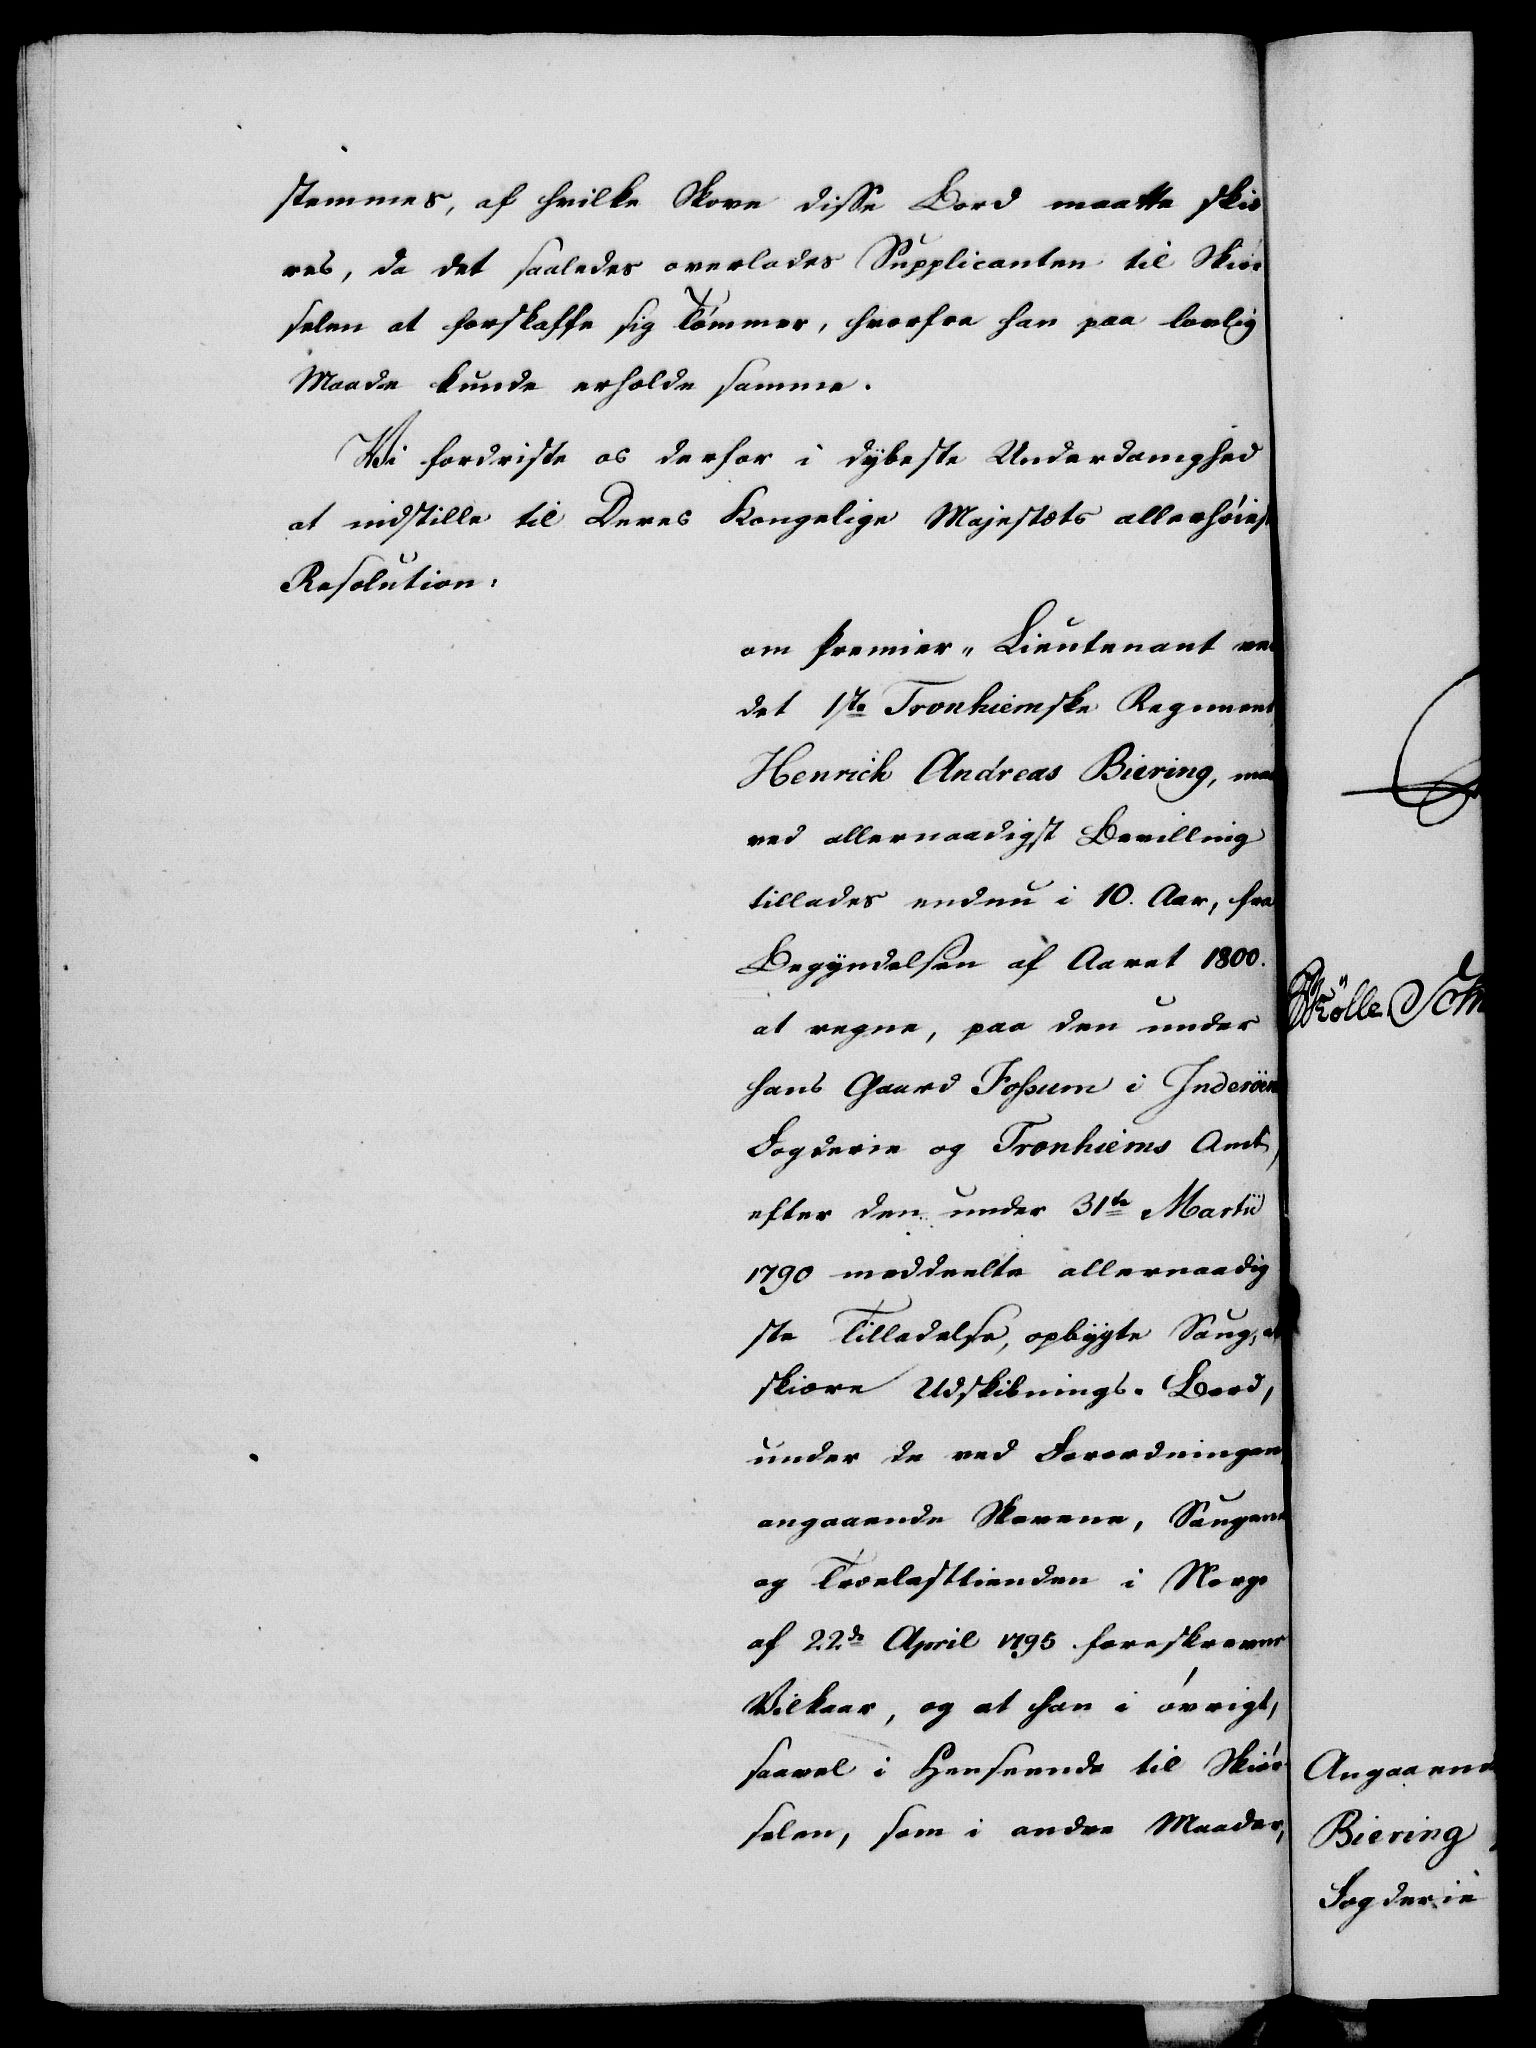 stemmes, af hvilke Skove disse Bord maatte skiæ
res, da det saaledes overlades Supplicanten til Skiør
selen at forskaffe sig Tømmer, hvorfra han paa lovlig
Maade kunde erholde samme.
Vi fordriste os derfor i dybeste Underdanighed
at indstille til Deres Kongelige Majestæts allerhøiest
Resolution:
om Premier-Lieutenant ved
det 1ste Tronhiemske Regiment
Henrich Andreas Biering, maa
ved allernaadigst Bevilling
tillades endnu i 10. Aar, fra
Begyndelsen af Aaret 1800.
at regne, paa den under
hans Gaard Fossum i Inderøen
Fogderie og Tronhiems Amt,
efter den under 31te Martii
1790 meddeelte allernaadig
ste Tilladelse, opbygte Saug, at
skiære Udskibnings-Bord,
under de ved Forordningen
angaaende Skovene, Saugene
og Trælasttienden i Norge
af 22de April 1795 foreskrevne
Vilkaar, og at han i øvrigt,
saavel i Henseende til Skiør
selen, som i andre Maader,
Angaaend
Biering
Fogderie